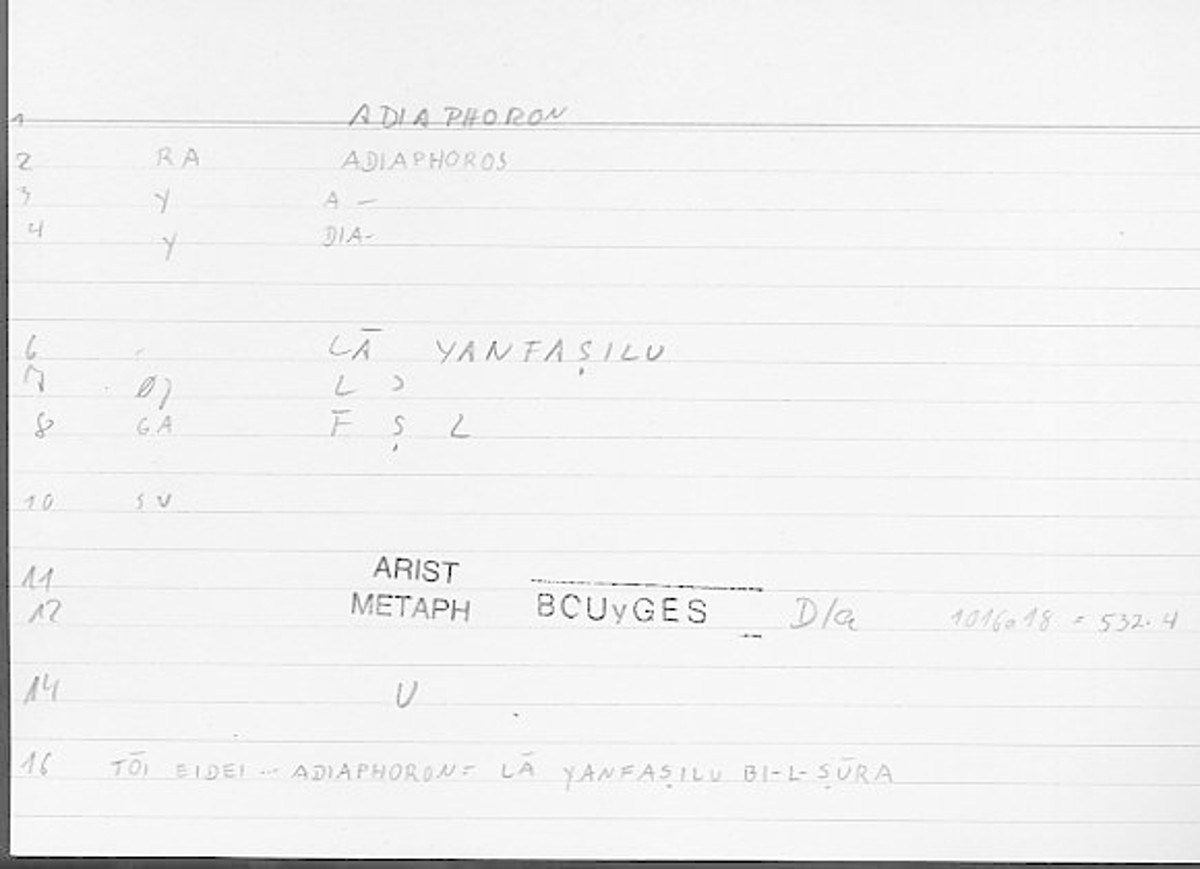 1 ADIAPHORON
2 RA ADIAPHOROS
3 Y A –
4 Y DIA-
6 LĀ YANFAṢILU
7 L Ɔ
8 GA F Ṣ L
10 SU
11 ARIST
12 METAPH BCUyGES D/a 1016a18 = 532.4
14 U
16 TŌI EIDEI ... ADIAPHORON = LĀ YANFAṢILU BI-L-ṢŪRA